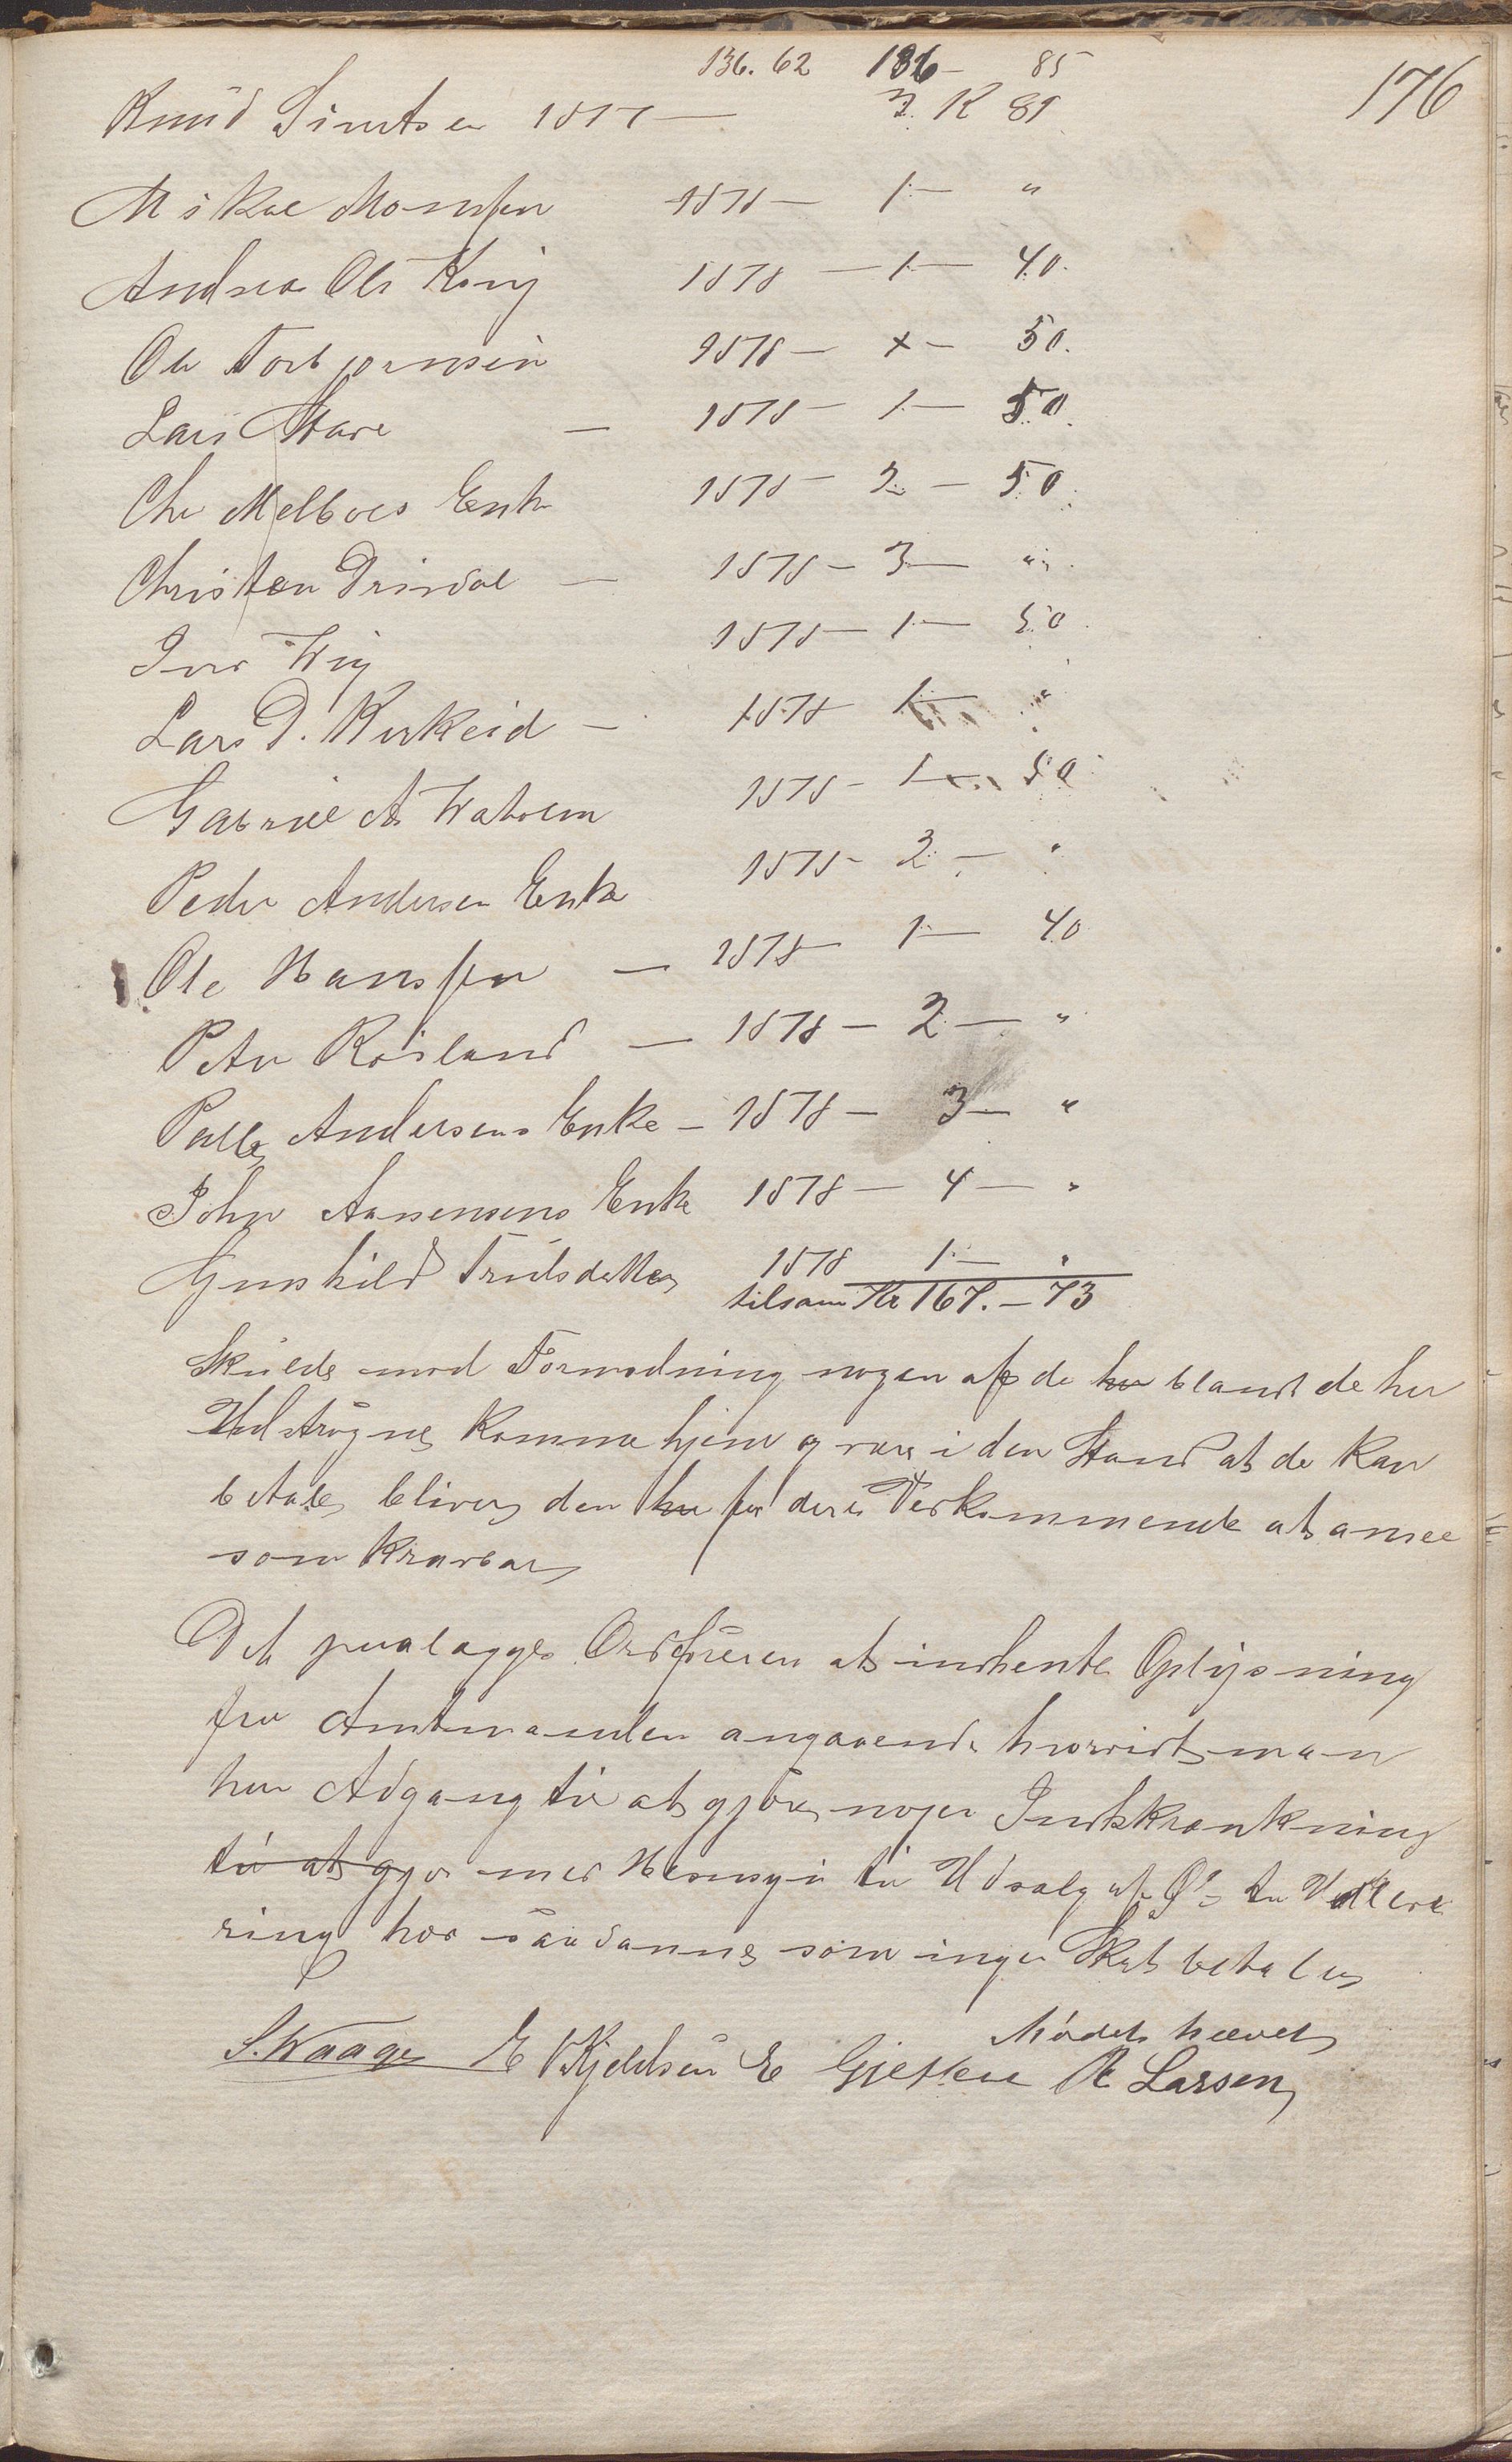 136.62 136 – 85
176
Knud Simtsen 1877 — 2. K 81
Mikal Monssen 1878 — 1 — "
Andrea Ols Kvig 1878 — 1 — 40.
Ole Torbjørnsen 1878 — 1 — 50.
Lars Stave — 1878 — 1 — 50.
Chr Melboes Enke 1878 — 2 — 50.
Christen Drivdal — 1878 — 3 — "
Iver Wiig 1878 — 1 — 50
Lars D. Kirkeid — 1878 1 — "
Gabriel A Watnem 1878 — 1 — 50
Peder Andersen Enke 1878 — 2 — "
Ole Hanssen — 1878 — 1 — 40
Peter Røisland — 1878 — 2 — "
Palle Andersens Enke — 1878 — 3 — "
John Aanensens Enke 1878 — 4 — "
Gunhild Trulsdatter 1878 1 — "
tilsam Kr 167. — 73
Skulde mod Formodning nogen af de her blandt de her
Udstrøgne komme hjem og være i den Stand at de kan
betale bliver den her for deres Vedkommende at ansee
som Krævbar
Det paalægges Ordføreren at indhente Oplysning
fra Amtmanden angaaende hvorvidt man
har Adgang til at gjøre nogen Indskrænkning
til at gjør med Hensyn til Udsalg af Øl til Udskere
ring hos saadanne som ingen Skat betaler
Mødet hævet
S. Waage E Kjeldsen E Gjettere R Larsen